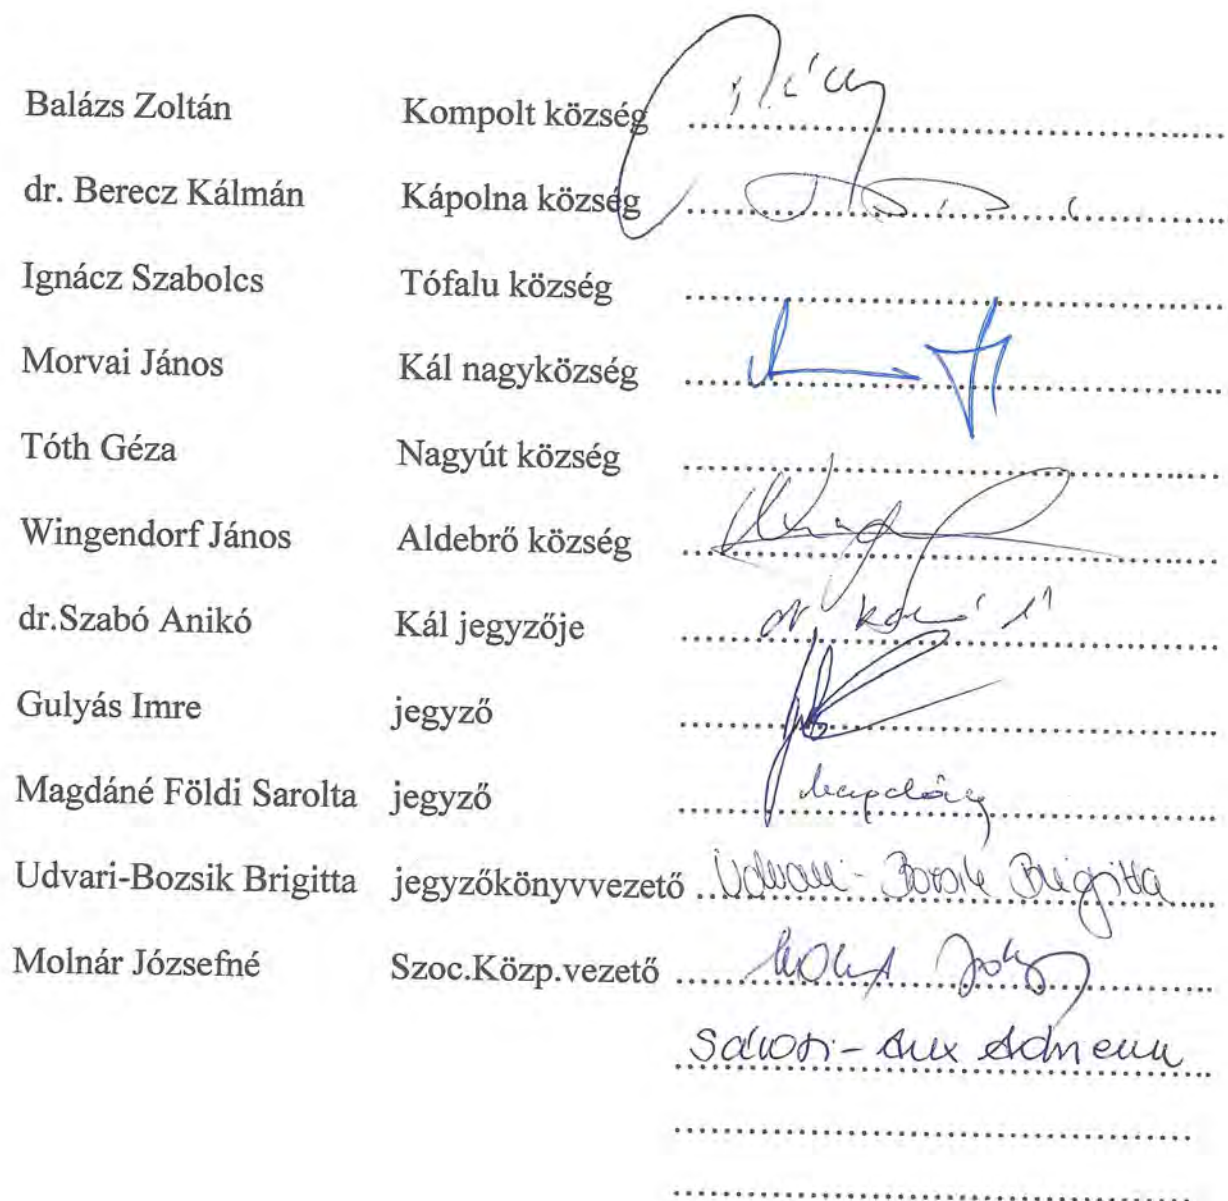 Balázs Zoltán Kompolt község
dr. Berecz Kálmán Kápolna község
Ignácz Szabolcs Tófalu község
Morvai János Kál nagyközség
Tóth Géza Nagyút község
Wingendorf János Aldebrő község
dr.Szabó Anikó Kál jegyzője dr.
Gulyás Imre jegyző
Magdáné Földi Sarolta jegyző
Udvari-Bozsik Brigitta jegyzőkönyvvezető Udvari-Bozsik Brigitta
Molnár Józsefné Szoc.Közp.vezető